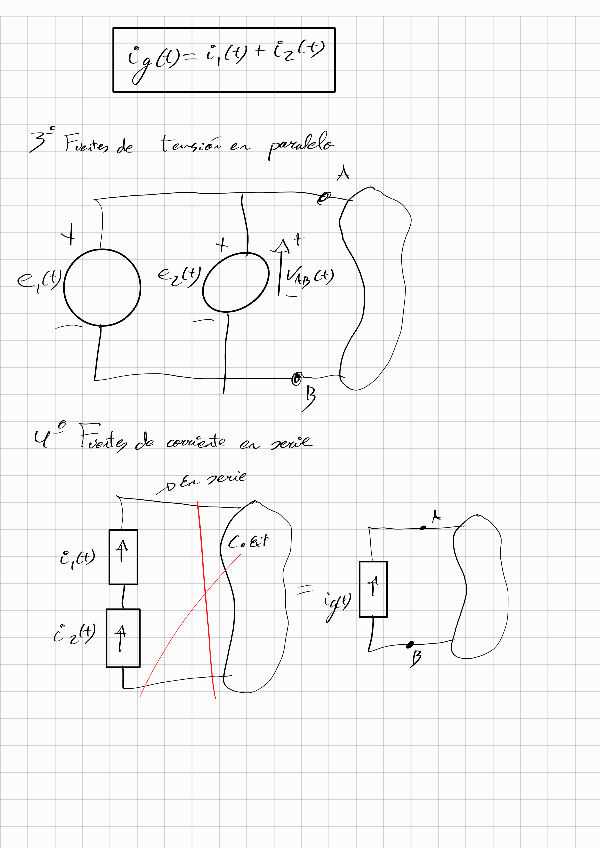 ig(t) = i₁(t) + i₂(t)
3º Fuentes de tensión en paralelo
A
+
+
+
e₁(t)
e₂(t)
V_AB(t)
—
—
—
B
4º Fuentes de corriente en serie
En serie
A
C. Ext
i₁(t)
=
ig(t)
i₂(t)
B